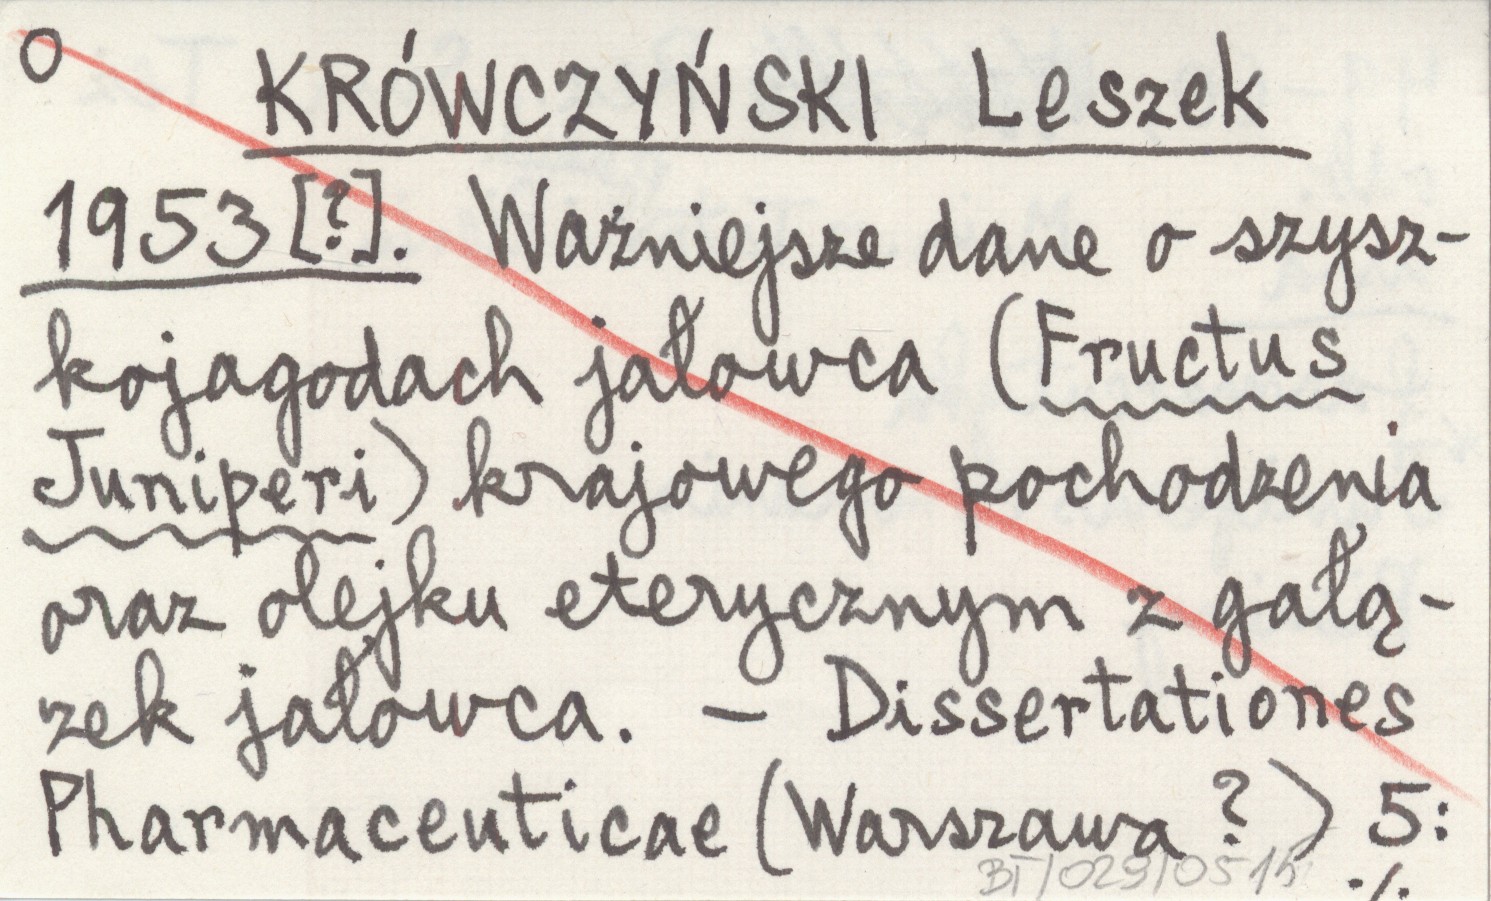 O
KRÓWCZYŃSKI Leszek
1953 [?]. Ważniejsze dane o szysz-
kojagodach jałowca (Fructus
Juniperi) krajowego pochodzenia
oraz olejku eterycznym z gałą-
zek jałowca. – Dissertationes
Pharmaceuticae (Warszawa ?) 5:
BT/023/0515
·/·